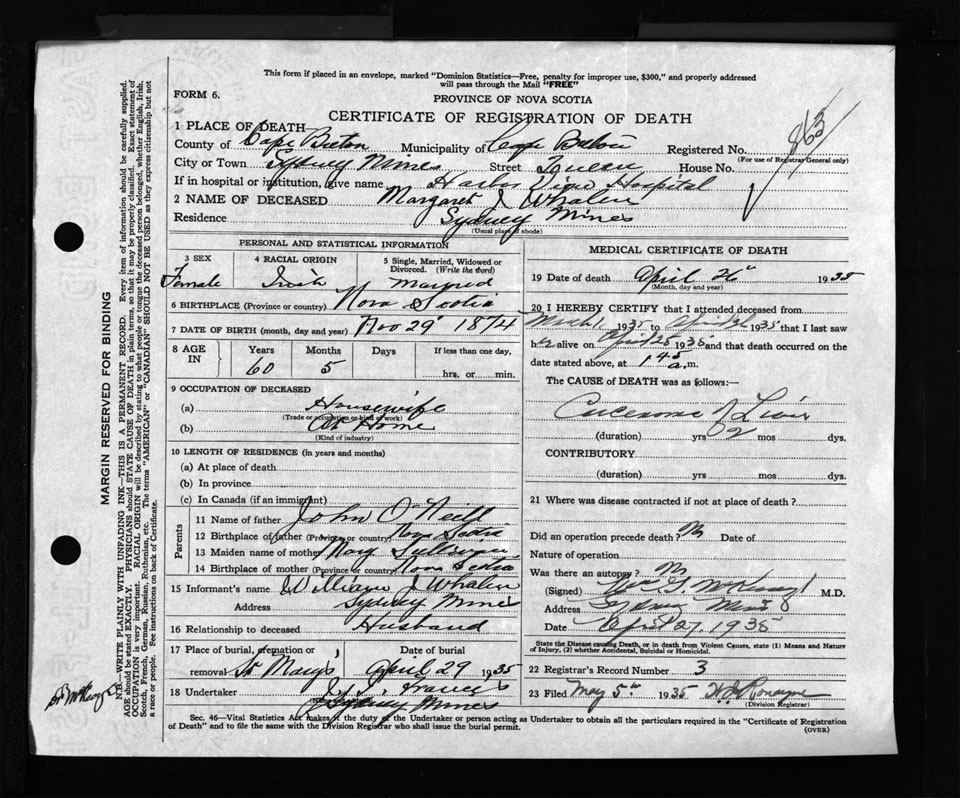 This form if placed in an envelope, marked "Dominion Statistics—Free, penalty for improper use, $300," and properly addressed
will pass through the Mail "FREE"
FORM 6.
PROVINCE OF NOVA SCOTIA
CERTIFICATE OF REGISTRATION OF DEATH
1 PLACE OF DEATH
County of Cape Breton Municipality of Cape Breton Registered No.
863
(For use of Registrar General only)
City or Town Sydney Mines Street Queen House No.
If in hospital or institution, give name Harbor View Hospital
2 NAME OF DECEASED Margaret J Whalen
Residence Sydney Mines
(Usual place of abode)
PERSONAL AND STATISTICAL INFORMATION
3 SEX
Female
4 RACIAL ORIGIN
Irish
5 Single, Married, Widowed or
Divorced. (Write the word)
Married
6 BIRTHPLACE (Province or country) Nova Scotia
7 DATE OF BIRTH (month, day and year) Nov 29" 1874
8 AGE IN
Years Months Days If less than one day,
60 5 hrs. or min.
9 OCCUPATION OF DECEASED
(a) Housewife
(Trade or occupation or kind of work)
(b) At Home
(Kind of industry)
10 LENGTH OF RESIDENCE (in years and months)
(a) At place of death
(b) In province
(c) In Canada (if an immigrant)
Parents
11 Name of father John O'Neill
12 Birthplace of father (Province or country) Nova Scotia
13 Maiden name of mother Mary Sullivan
14 Birthplace of mother (Province or country) Nova Scotia
15 Informant's name William J Whalen
Address Sydney Mines
16 Relationship to deceased Husband
17 Place of burial, cremation or Date of burial
removal St Marys' April 29 1935
18 Undertaker Francis
Sydney Mines
MEDICAL CERTIFICATE OF DEATH
19 Date of death April 26" 1935
(Month, day and year)
20 I HEREBY CERTIFY that I attended deceased from
1935 to April 26 1935 that I last saw
her alive on April 25 1935 and that death occurred on the
date stated above, at 1 45 a.m.
The CAUSE of DEATH was as follows:—
Carcinoma of Liver
(duration) yrs 2 mos dys.
CONTRIBUTORY
(duration) yrs mos dys.
21 Where was disease contracted if not at place of death?
Did an operation precede death? No Date of
Nature of operation
Was there an autopsy? No
(Signed) M.D.
Address Sydney Mines
Date April 27, 1935
State the Disease causing Death, or in death from Violent Causes, state (1) Means and Nature
of Injury, (2) whether Accidental, Suicidal or Homicidal.
22 Registrar's Record Number 3
23 Filed May 5th 1935
(Division Registrar)
Sec. 46—Vital Statistics Act makes it the duty of the Undertaker or person acting as Undertaker to obtain all the particulars required in the "Certificate of Registration
of Death" and to file the same with the Division Registrar who shall issue the burial permit.
(OVER)
MARGIN RESERVED FOR BINDING
N.B.—WRITE PLAINLY WITH UNFADING INK—THIS IS A PERMANENT RECORD. Every item of information should be carefully supplied.
AGE should be stated EXACTLY. PHYSICIANS should STATE CAUSE OF DEATH in plain terms, so that it may be properly classified. Exact statement of
OCCUPATION is very important. RACIAL ORIGIN will be described by stating to what people or tongue the deceased person belonged, whether English, Irish,
Scotch, French, German, Russian, Ruthenian, etc. The terms "AMERICAN" or "CANADIAN" SHOULD NOT BE USED as they express citizenship but not
a race or people. See instructions on back of Certificate.